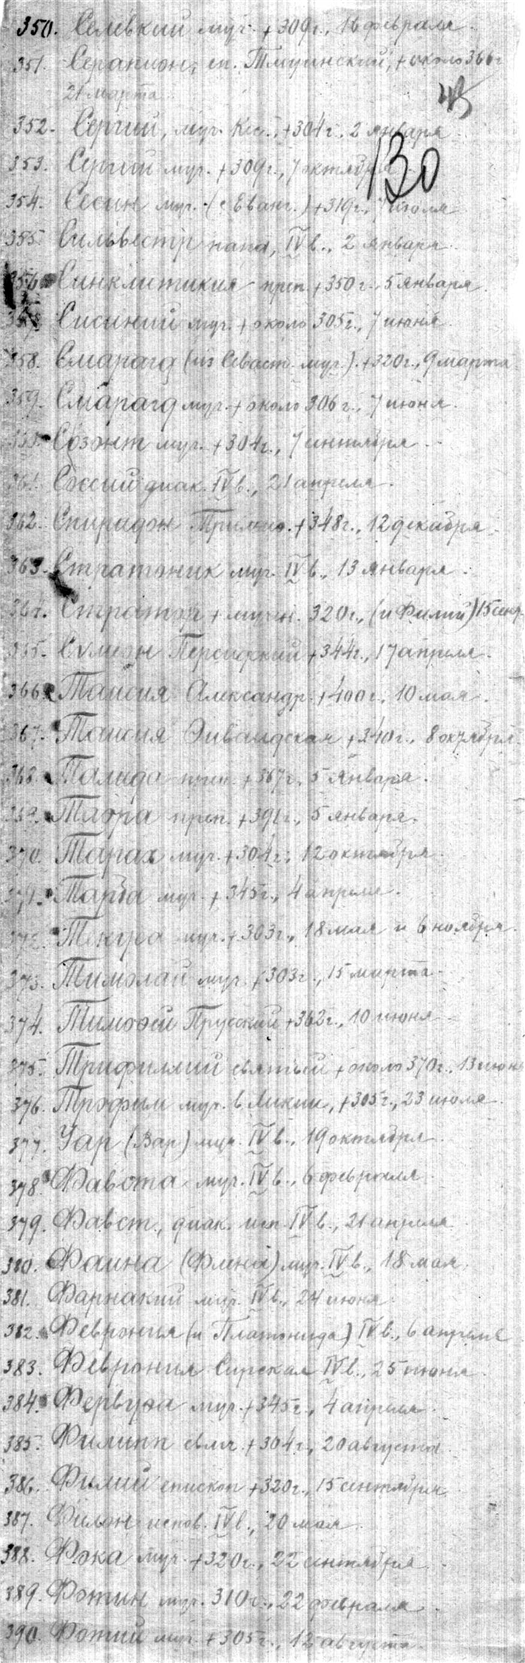 350. Селевкий муч. +309г., 16 февраля.
351. Серапион, еп. Тмуинский, + около 366г
21 марта
43
352. Сергий, муч. Кес., +304г. 2 января
130
353. Сергий муч. +309г., 7 октября
354. Сесин муч. (с Еванг.) +319г., 7 июля
355. Сильвестр папа, IVв., 2 января.
356. Синклитикия преп. +350г., 5 января.
357. Сисиний муч. + около 305г., 7 июня.
358. Смарагд (из Севаст. муч.) +320г., 9 марта
359. Смарагд муч. + около 306г., 7 июня.
360. Созонт муч. +304г., 7 сентября.
361. Соссий диак. IVв., 21 апреля.
362. Спиридон Тримиф. +348г., 12 декабря.
363. Стратоник муч. IVв., 13 января.
364. Стратор + мучен. 320г., (и Филий) 15 сент.
365. Сѵмеон Персидский +344г., 17 апреля.
366. Таисия Александр. +400г., 10 мая.
367. Таисия Фиваидская +340г., 8 октября.
368. Талида преп. +367г., 5 января.
369. Таора преп. +391г., 5 января.
370. Тарах муч. +304г., 12 октября.
371. Тарва муч. +345г., 4 апреля.
372. Текуса муч. +303г., 18 мая и 6 ноября.
373. Тимолай муч. +303г., 15 марта.
374. Тимофей Прусский +362г., 10 июня
375. Трифиллий святый + около 370г., 13 июня
376. Трофим муч. в Ликии, +305г., 23 июля.
377. Уар (Вар) муч. IVв., 19 октября.
378. Фавста муч. IVв., 6 февраля.
379. Фавст, диак. исп. IVв., 21 апреля
380. Фаина (Флена) муч. IVв., 18 мая.
381. Фарнакий муч. IVв., 24 июня.
382. Феврония (и Платонида) IVв., 6 апреля
383. Феврония Сирская IVв., 25 июня.
384. Фервуфа муч. +345г., 4 апреля.
385. Филипп свмч. +304г., 20 августа.
386. Филий епископ +320г., 15 сентября
387. Филон испов. IVв., 20 мая.
388. Фока муч. +320г., 22 сентября.
389. Фотин муч. 310г., 22 февраля.
390. Фотий муч. +305г., 12 августа.